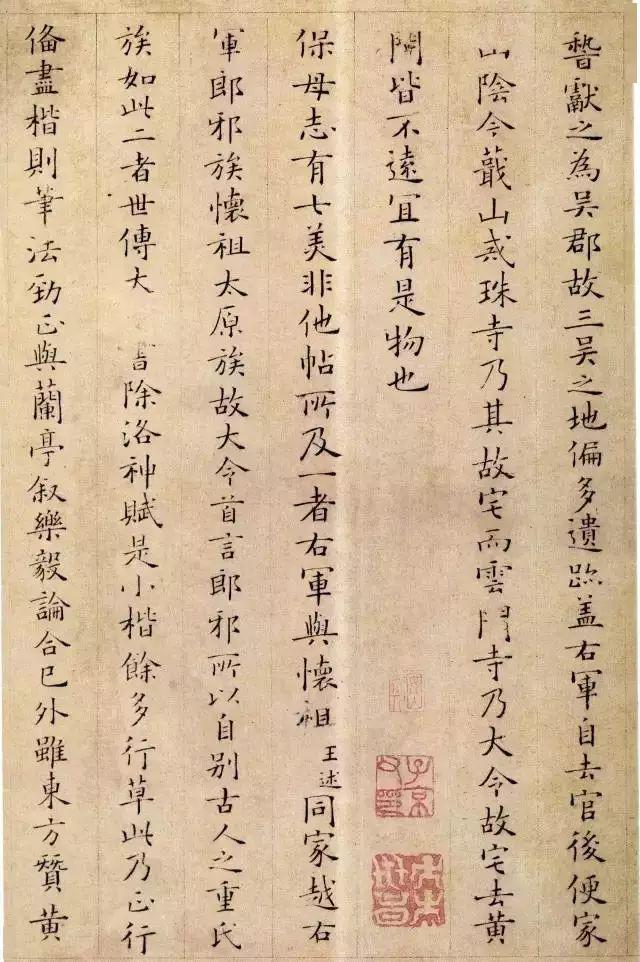 獻之為吴郡故三吴之地偏多遺跡盖右軍自去官後便家
山陰今蕺山戒珠寺乃其故宅而雲門寺乃大令故宅去黄
閍皆不遠宜有是物也
保母志有七美非他帖所及一者右軍與懷祖王述同家越右
軍郎邪族懷祖太原族故大令首言郎邪所以自别古人之重氏
族如此二者世傳大書除洛神賦是小楷餘多行草此乃正行
俻盡楷則筆法勁正與蘭亭叙樂毅論合已外雖東方贊黄
子京父印